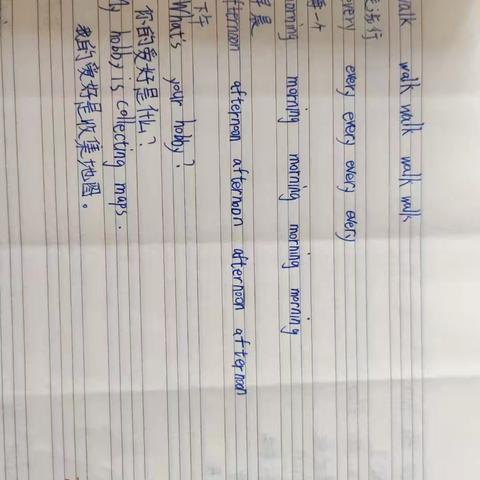 walk walk walk walk walk
步行
every every every every every
每一个
morning morning morning morning morning
早晨
afternoon afternoon afternoon afternoon afternoon
下午
What's your hobby?
你的爱好是什么?
My hobby is collecting maps.
我的爱好是收集地图。